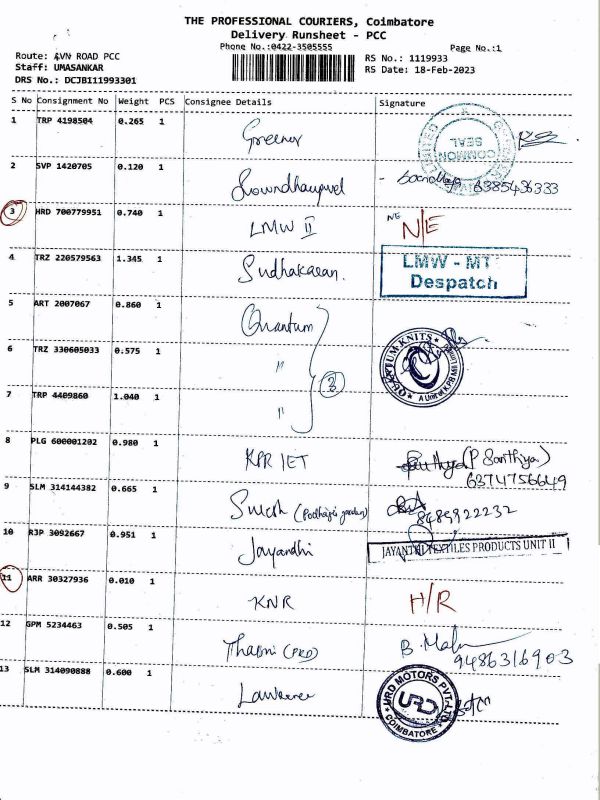 THE PROFESSIONAL COURIERS, Coimbatore
Delivery Runsheet - PCC
Phone No.:0422-3505555
Page No.:1
Route: AVN ROAD PCC
Staff: UMASANKAR
DRS No.: DCJB111993301
RS No.: 1119933
RS Date: 18-Feb-2023
S No Consignment No Weight PCS Consignee Details Signature
1 TRP 4198504 0.265 1
COMMON SEAL
2 SVP 1420705 0.120 1 6385436333
3 HRD 700779951 0.740 1 LMW II NE N/E
4 TRZ 220579563 1.345 1 Sudhakaran. LMW - MT
Despatch
5 ART 2007067 0.860 1 Quantum
QUANTUM KNITS
6 TRZ 330605033 0.575 1 "
3
7 TRP 4409860 1.040 1 "
8 PLG 600001202 0.980 1 KPR IET (P Santhiya)
6374756649
9 SLM 314144382 0.665 1 Suresh
8489922232
10 RJP 3092667 0.951 1 Jayandhi JAYANTHI TEXTILES PRODUCTS UNIT II
11 ARR 30327936 0.010 1 KNR H/R
12 GPM 5234463 0.505 1 (PRD) 9486316903
13 SLM 314090888 0.600 1 Lawrence
URD MOTORS PVT. LTD
URD
COIMBATORE